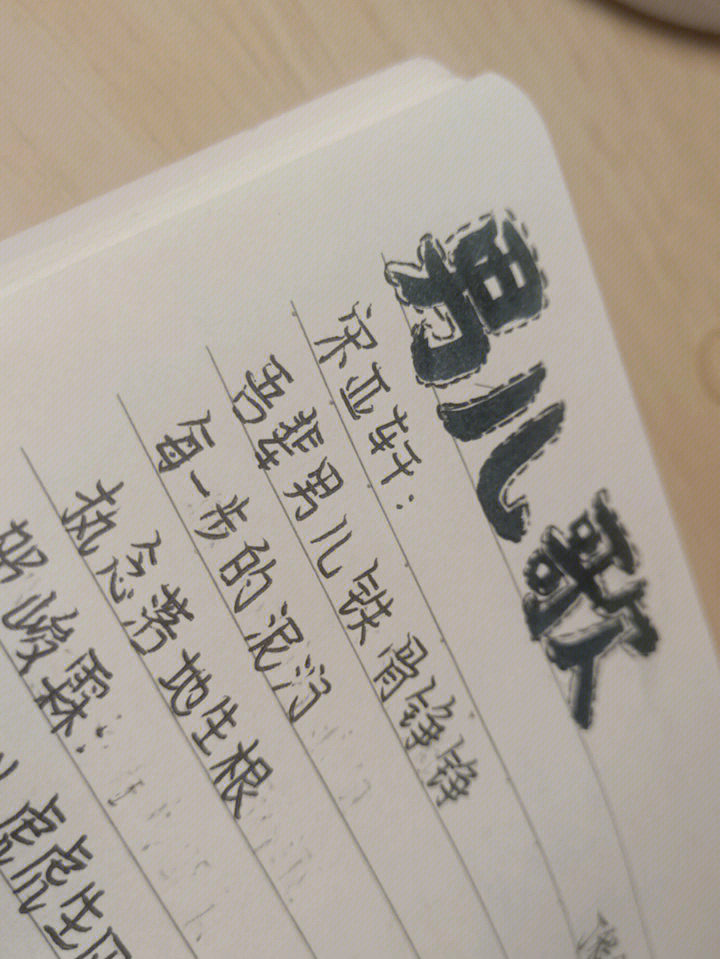 男儿歌
宋亚轩：
吾辈男儿铁骨铮铮
每一步的泥泞
执念落地生根
贺峻霖：
虎虎生风